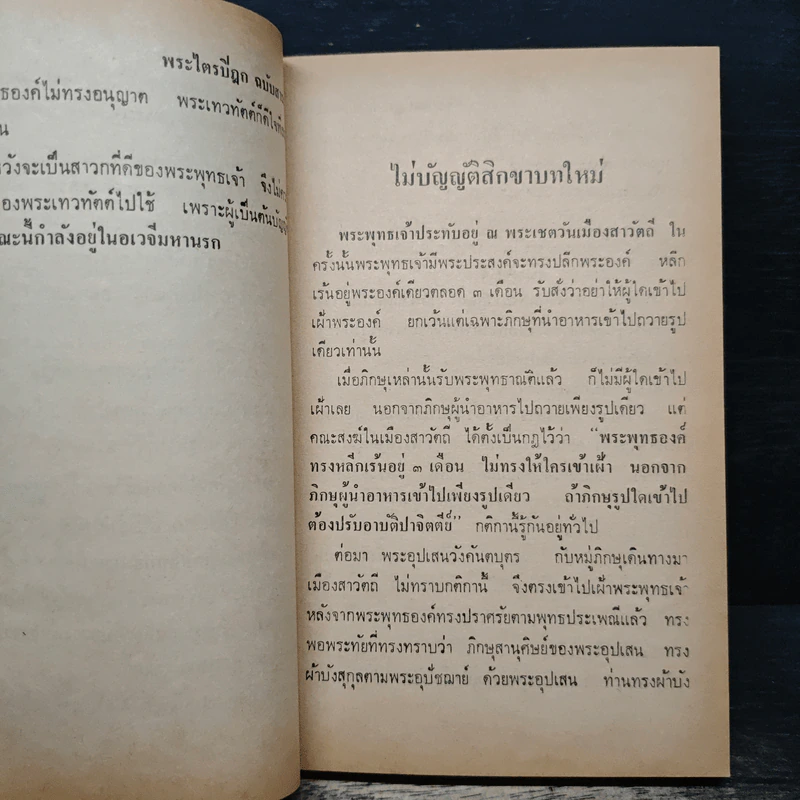 พระไตรปิฎก ฉบับ
ธองค์ไม่ทรงอนุญาต พระเทวทัตต์ก็ดีใจ
น
หวังจะเป็นสาวกที่ดีของพระพุทธเจ้า จึงไม่
องพระเทวทัตต์ไปใช้ เพราะผู้เป็นต้นบัญ
ณะนี้กำลังอยู่ในอเวจีมหานรก
ไม่บัญญัติสิกขาบทใหม่
พระพุทธเจ้าประทับอยู่ ณ พระเชตวันเมืองสาวัตถี ใน
ครั้งนั้นพระพุทธเจ้ามีพระประสงค์จะทรงปลีกพระองค์ หลีก
เร้นอยู่พระองค์เดียวตลอด ๓ เดือน รับสั่งว่าอย่าให้ผู้ใดเข้าไป
เฝ้าพระองค์ ยกเว้นแต่เฉพาะภิกษุที่นำอาหารเข้าไปถวายรูป
เดียวเท่านั้น
เมื่อภิกษุเหล่านั้นรับพระพุทธาณัติแล้ว ก็ไม่มีผู้ใดเข้าไป
เฝ้าเลย นอกจากภิกษุผู้นำอาหารไปถวายเพียงรูปเดียว แต่
คณะสงฆ์ในเมืองสาวัตถี ได้ตั้งเป็นกฎไว้ว่า “พระพุทธองค์
ทรงหลีกเร้นอยู่ ๓ เดือน ไม่ทรงให้ใครเข้าเฝ้า นอกจาก
ภิกษุผู้นำอาหารเข้าไปเพียงรูปเดียว ถ้าภิกษุรูปใดเข้าไป
ต้องปรับอาบัติปาจิตตีย์” กติกานี้รู้กันอยู่ทั่วไป
ต่อมา พระอุปเสนวังคันตบุตร กับหมู่ภิกษุเดินทางมา
เมืองสาวัตถี ไม่ทราบกติกานี้ จึงตรงเข้าไปเฝ้าพระพุทธเจ้า
หลังจากพระพุทธองค์ทรงปราศรัยตามพุทธประเพณีแล้ว ทรง
พอพระทัยที่ทรงทราบว่า ภิกษุสานุศิษย์ของพระอุปเสน ทรง
ผ้าบังสุกุลตามพระอุปัชฌาย์ ด้วยพระอุปเสน ท่านทรงผ้าบัง